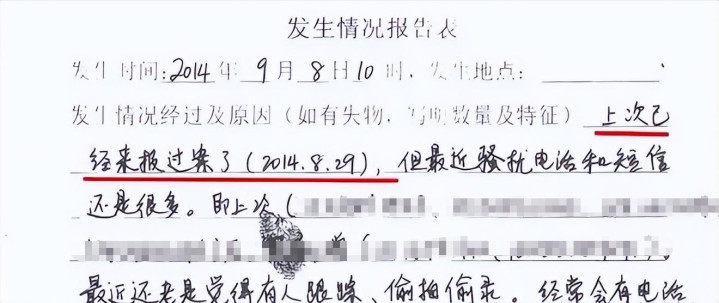 发生情况报告表
发生时间:2014年9月8日10时,发生地点:
发生情况经过及原因(如有失物,写明数量及特征)上次已
经来报过案了(2014.8.29),但最近骚扰电话和短信
还是很多。即上次(
最近还老是觉得有人跟踪、偷拍偷录。经常会有电话